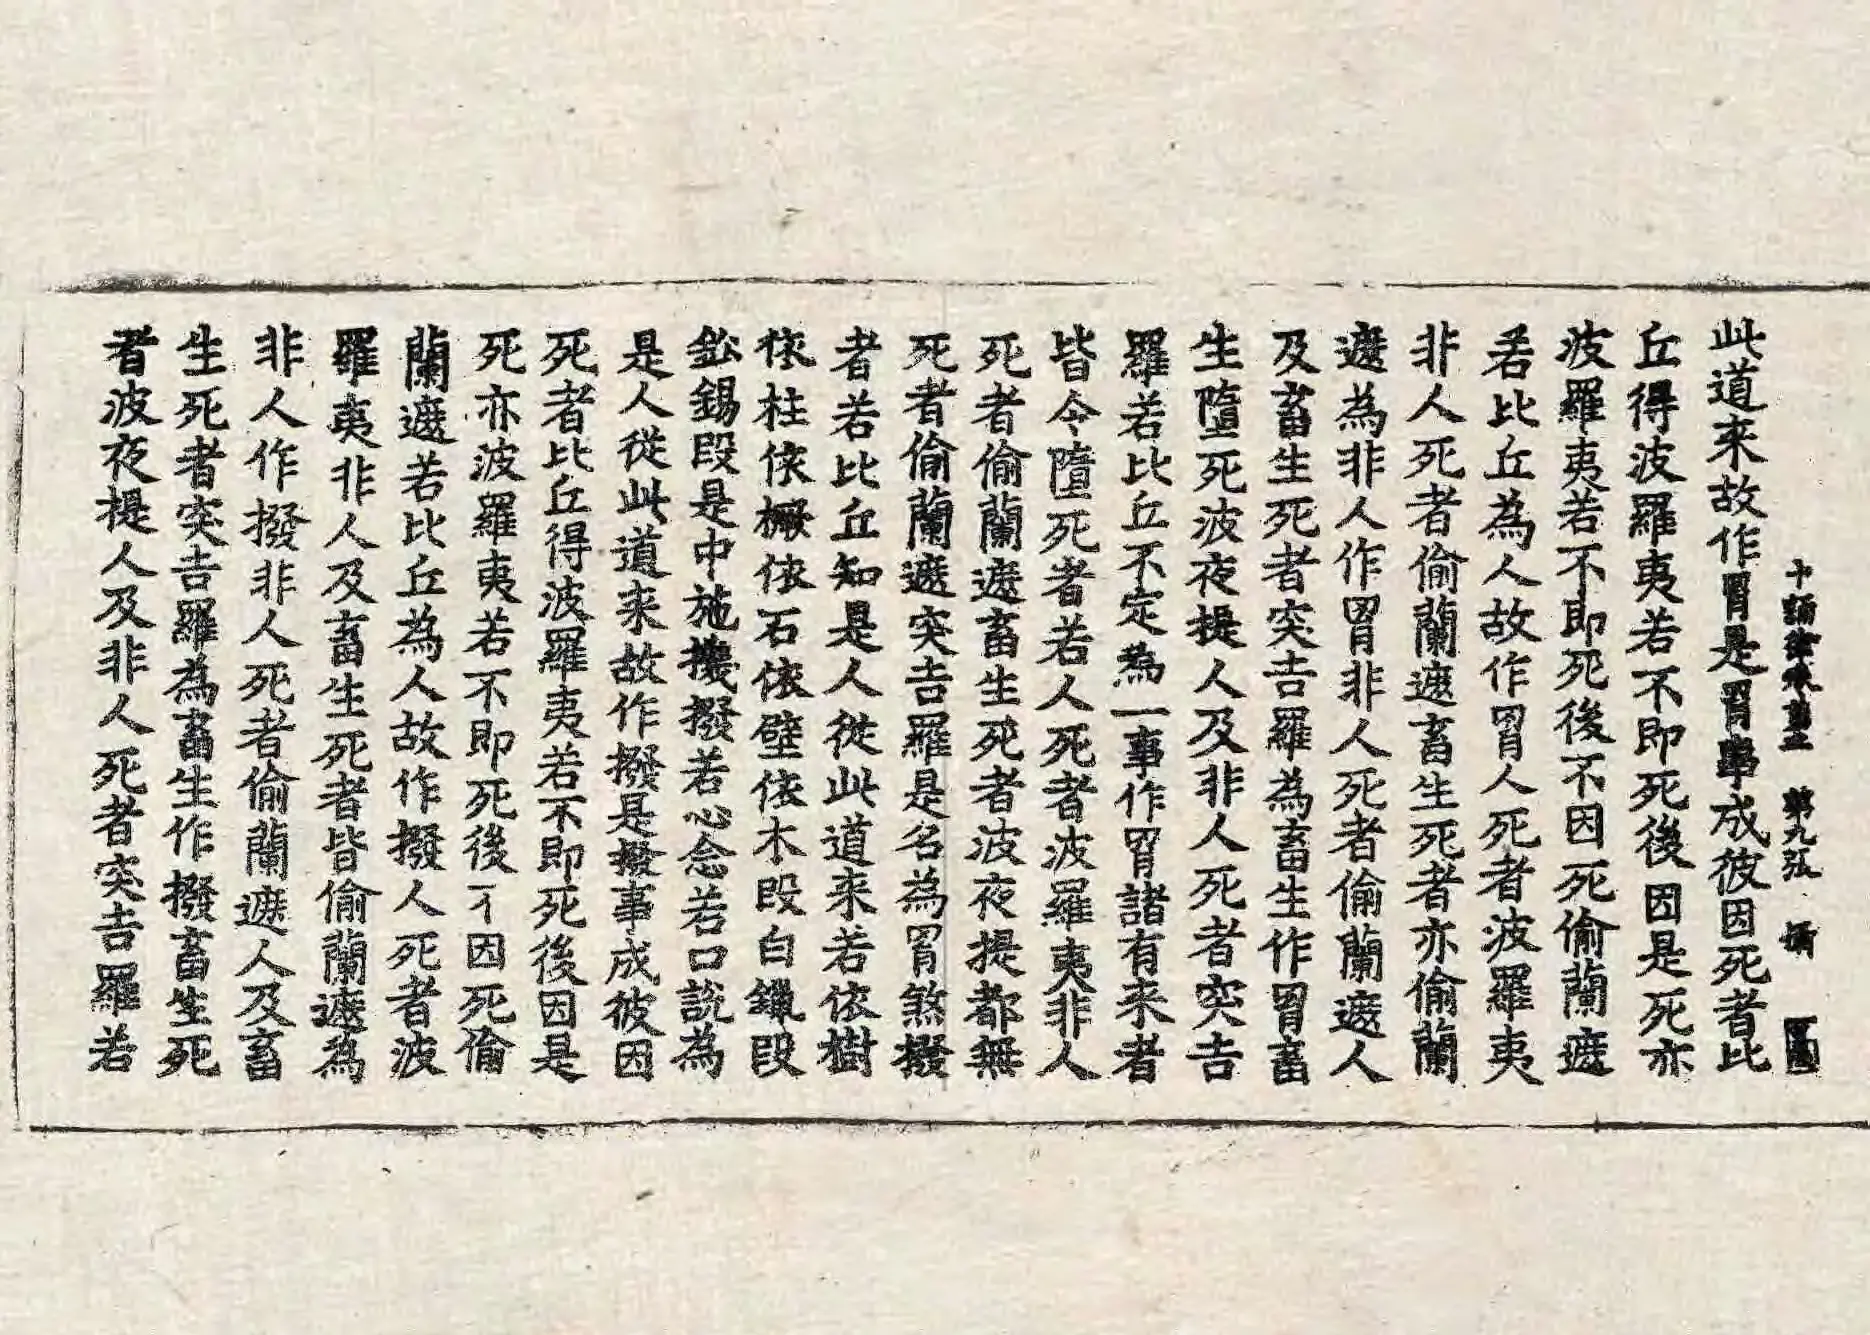 十誦律 第九張
此道来故作罥是罥事成彼因死者比
丘得波羅夷若不即死後因是死亦
波羅夷若不即死後不因死偷蘭遮
若比丘為人故作罥人死者波羅夷
非人死者偷蘭遮畜生死者亦偷蘭
遮為非人作罥非人死者偷蘭遮人
及畜生死者突吉羅為畜生作罥畜
生墮死波夜提人及非人死者突吉
羅若比丘不定為一事作罥諸有来者
皆令墮死者若人死者波羅夷非人
死者偷蘭遮畜生死者波夜提都無
死者偷蘭遮突吉羅是名為罥煞撥
者若比丘知是人從此道来若依樹
依柱依橛依石依壁依木段白鑞段
鈆錫段是中施撥若心念若口說為
是人從此道来故作撥是撥事成彼因
死者比丘得波羅夷若不即死後因是
死亦波羅夷若不即死後不因死偷
蘭遮若比丘為人故作撥人死者波
羅夷非人及畜生死者皆偷蘭遮為
非人作撥非人死者偷蘭遮人及畜
生死者突吉羅為畜生作撥畜生死
者波夜提人及非人死者突吉羅若